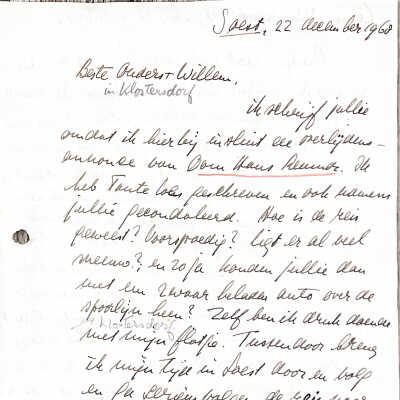 Soest, 22 december 1968
Beste Ouderst Willem,
in Klostersdorf
ik schrijf jullie
omdat ik hierbij insluit de overlijdens-
annonce van Oom Hans. Ik
heb Tante Loes geschreven en ook namens
jullie gecondoleerd. Hoe is de reis
geweest? Voorspoedig? ligt er al veel
sneeuw? en zo ja konden jullie dan
met een zwaar beladen auto over de
spoorlijn heen? Zelf ben ik druk doende
Klostersdorf
met mijn flatje. Tussendoor breng
ik mijn tijd in Soest door en volg
en de reis naar